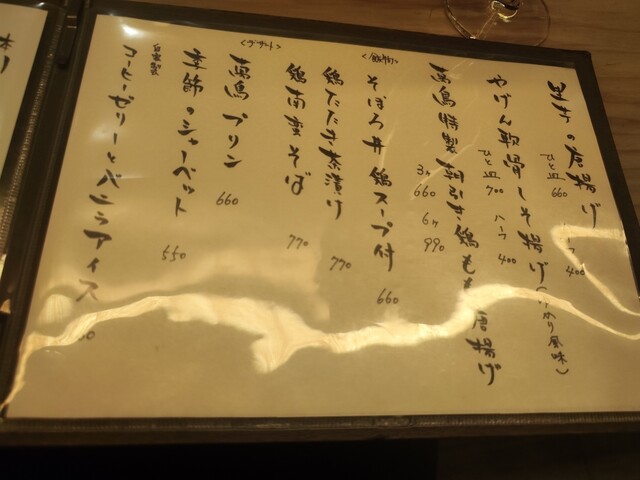 里芋の唐揚げ
ひと皿 660
ハーフ 400
やげん軟骨しそ揚げ(ゆかり風味)
ひと皿 700
ハーフ 400
南鳥特製 粉引き鶏もも唐揚げ
3ヶ 660
6ヶ 990
<飯物>
そぼろ丼 鶏スープ付 660
鶏たたき茶漬け 770
鶏南蛮そば 770
<デザート>
南鳥プリン 660
季節のシャーベット 550
自家製
コーヒーゼリーとバニラアイス